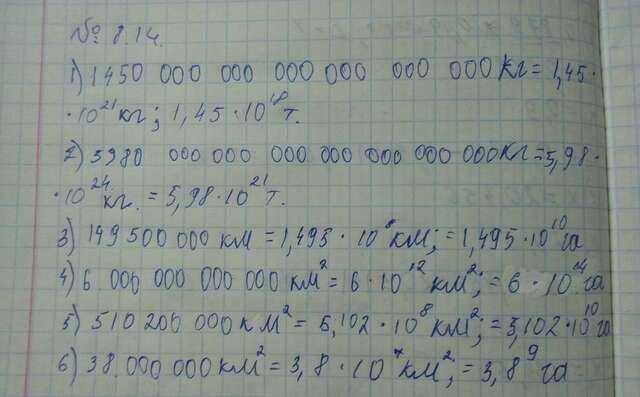 № 8.14.
1) 1450 000 000 000 000 000 000 кг = 1,45 ·
· 10²¹ кг; 1,45 · 10¹⁸ т.
2) 5980 000 000 000 000 000 000 000 кг = 5,98 ·
· 10²⁴ кг. = 5,98 · 10²¹ т.
3) 149 500 000 км = 1,495 · 10⁸ км; = 1,495 · 10¹⁰ га
4) 6 000 000 000 000 км² = 6 · 10¹² км²; = 6 · 10¹⁴ га
5) 510 200 000 км² = 5,102 · 10⁸ км²; = 5,102 · 10¹⁰ га
6) 38.000 000 км² = 3,8 · 10⁷ км²; = 3,8⁹ га